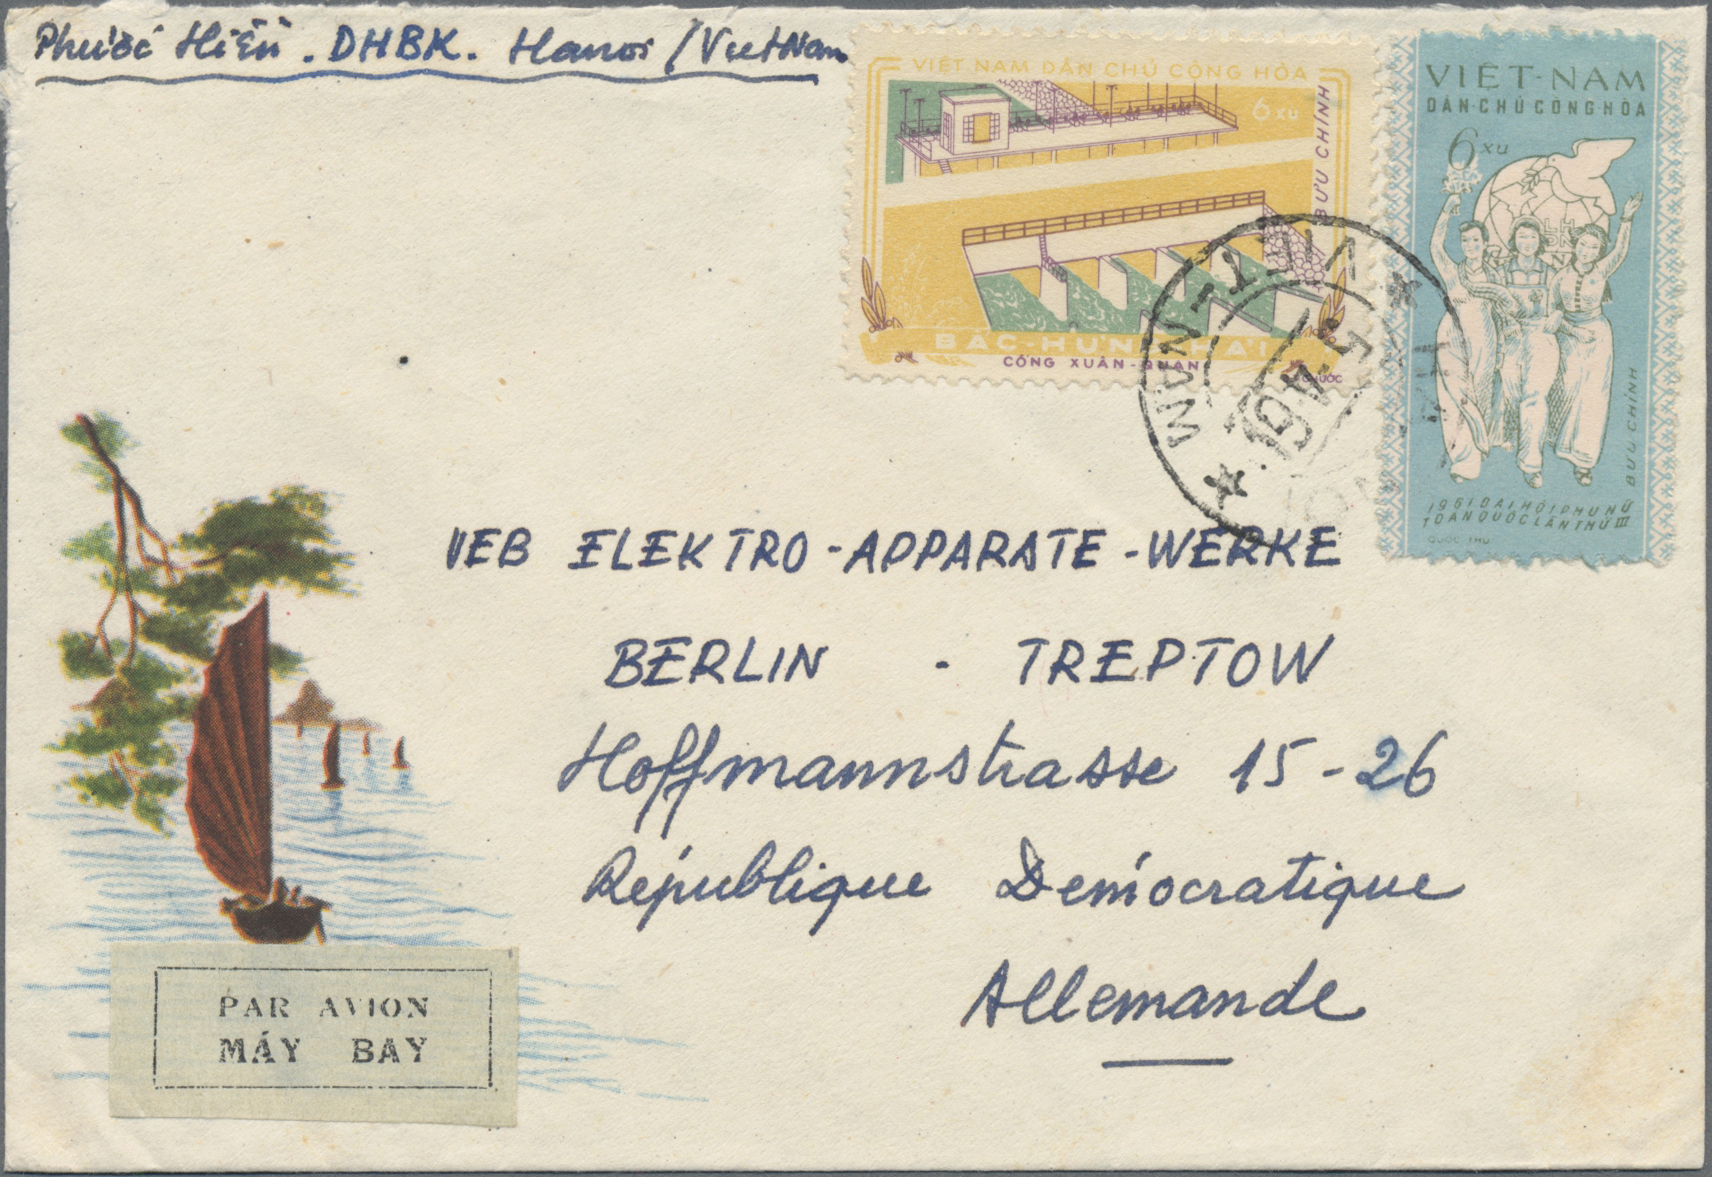 Phước Hiền. DHBK. Hanoi / VietNam
VIỆT NAM DÂN CHỦ CỘNG HÒA
6 XU
BƯU CHÍNH
BẮC-HƯNG-HẢI
CỐNG XUÂN-QUAN
VIỆT-NAM
DÂN-CHỦ CỘNG-HÒA
6 xu
BƯU CHÍNH
1961 ĐẠI HỘI PHỤ NỮ
TOÀN QUỐC LẦN THỨ III
QUỐC THỤ
VIET-NAM
5-4
61
VEB ELEKTRO-APPARATE-WERKE
BERLIN - TREPTOW
Hoffmannstrasse 15-26
République Démocratique
Allemande
PAR AVION
MÁY BAY